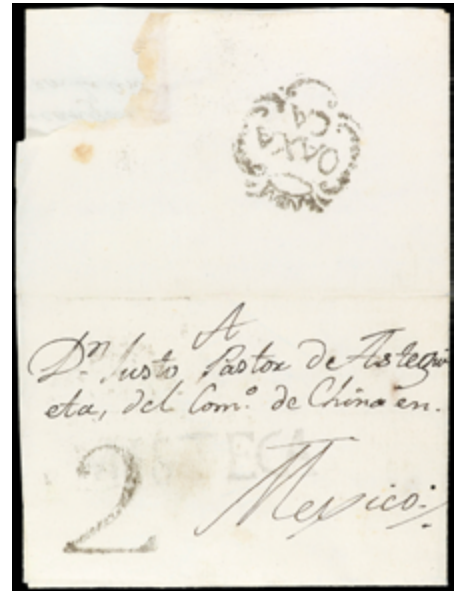 OAXA
CA
A
D.n Justo Pastor de Astegui
eta, del Com.o de China en.
2
Mexico: